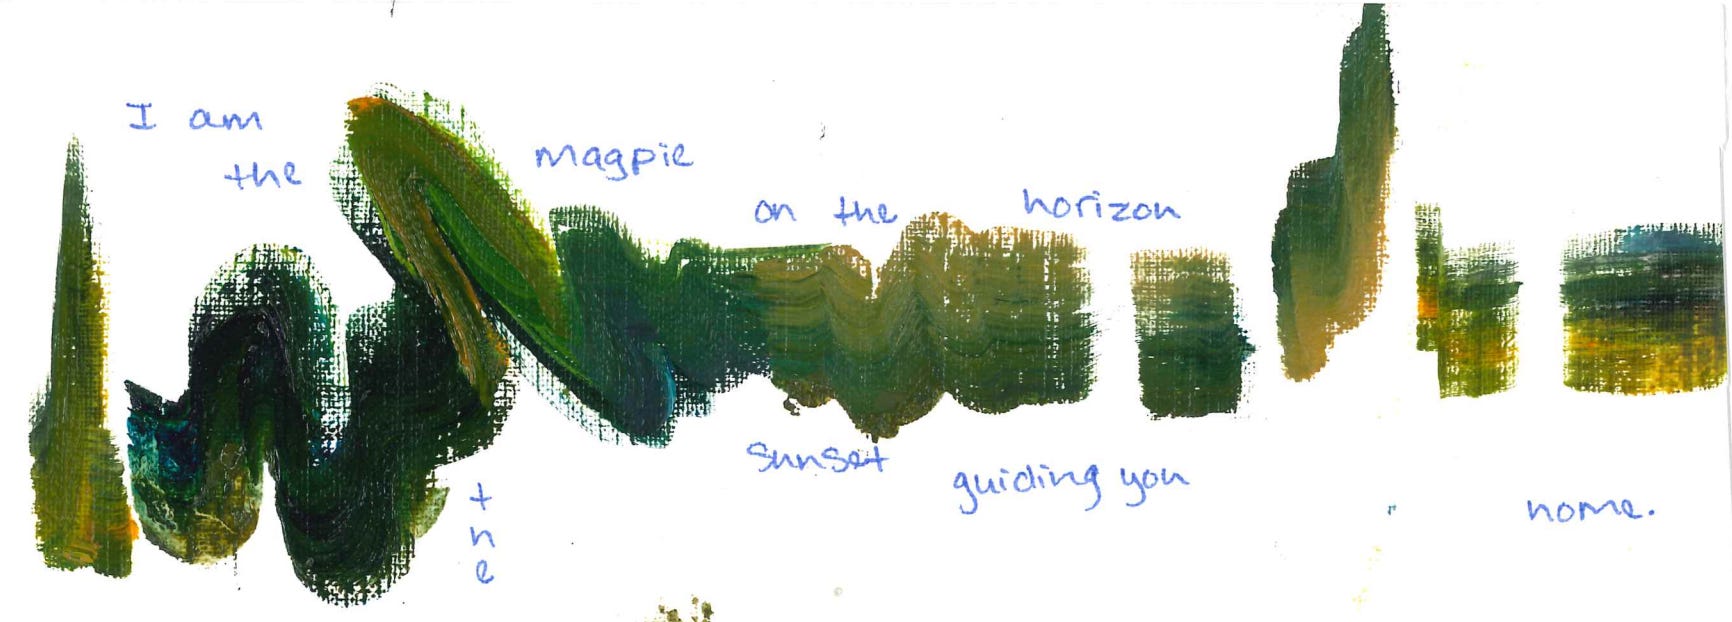 I am
the
magpie
on the horizon
the
sunset
guiding you
home.